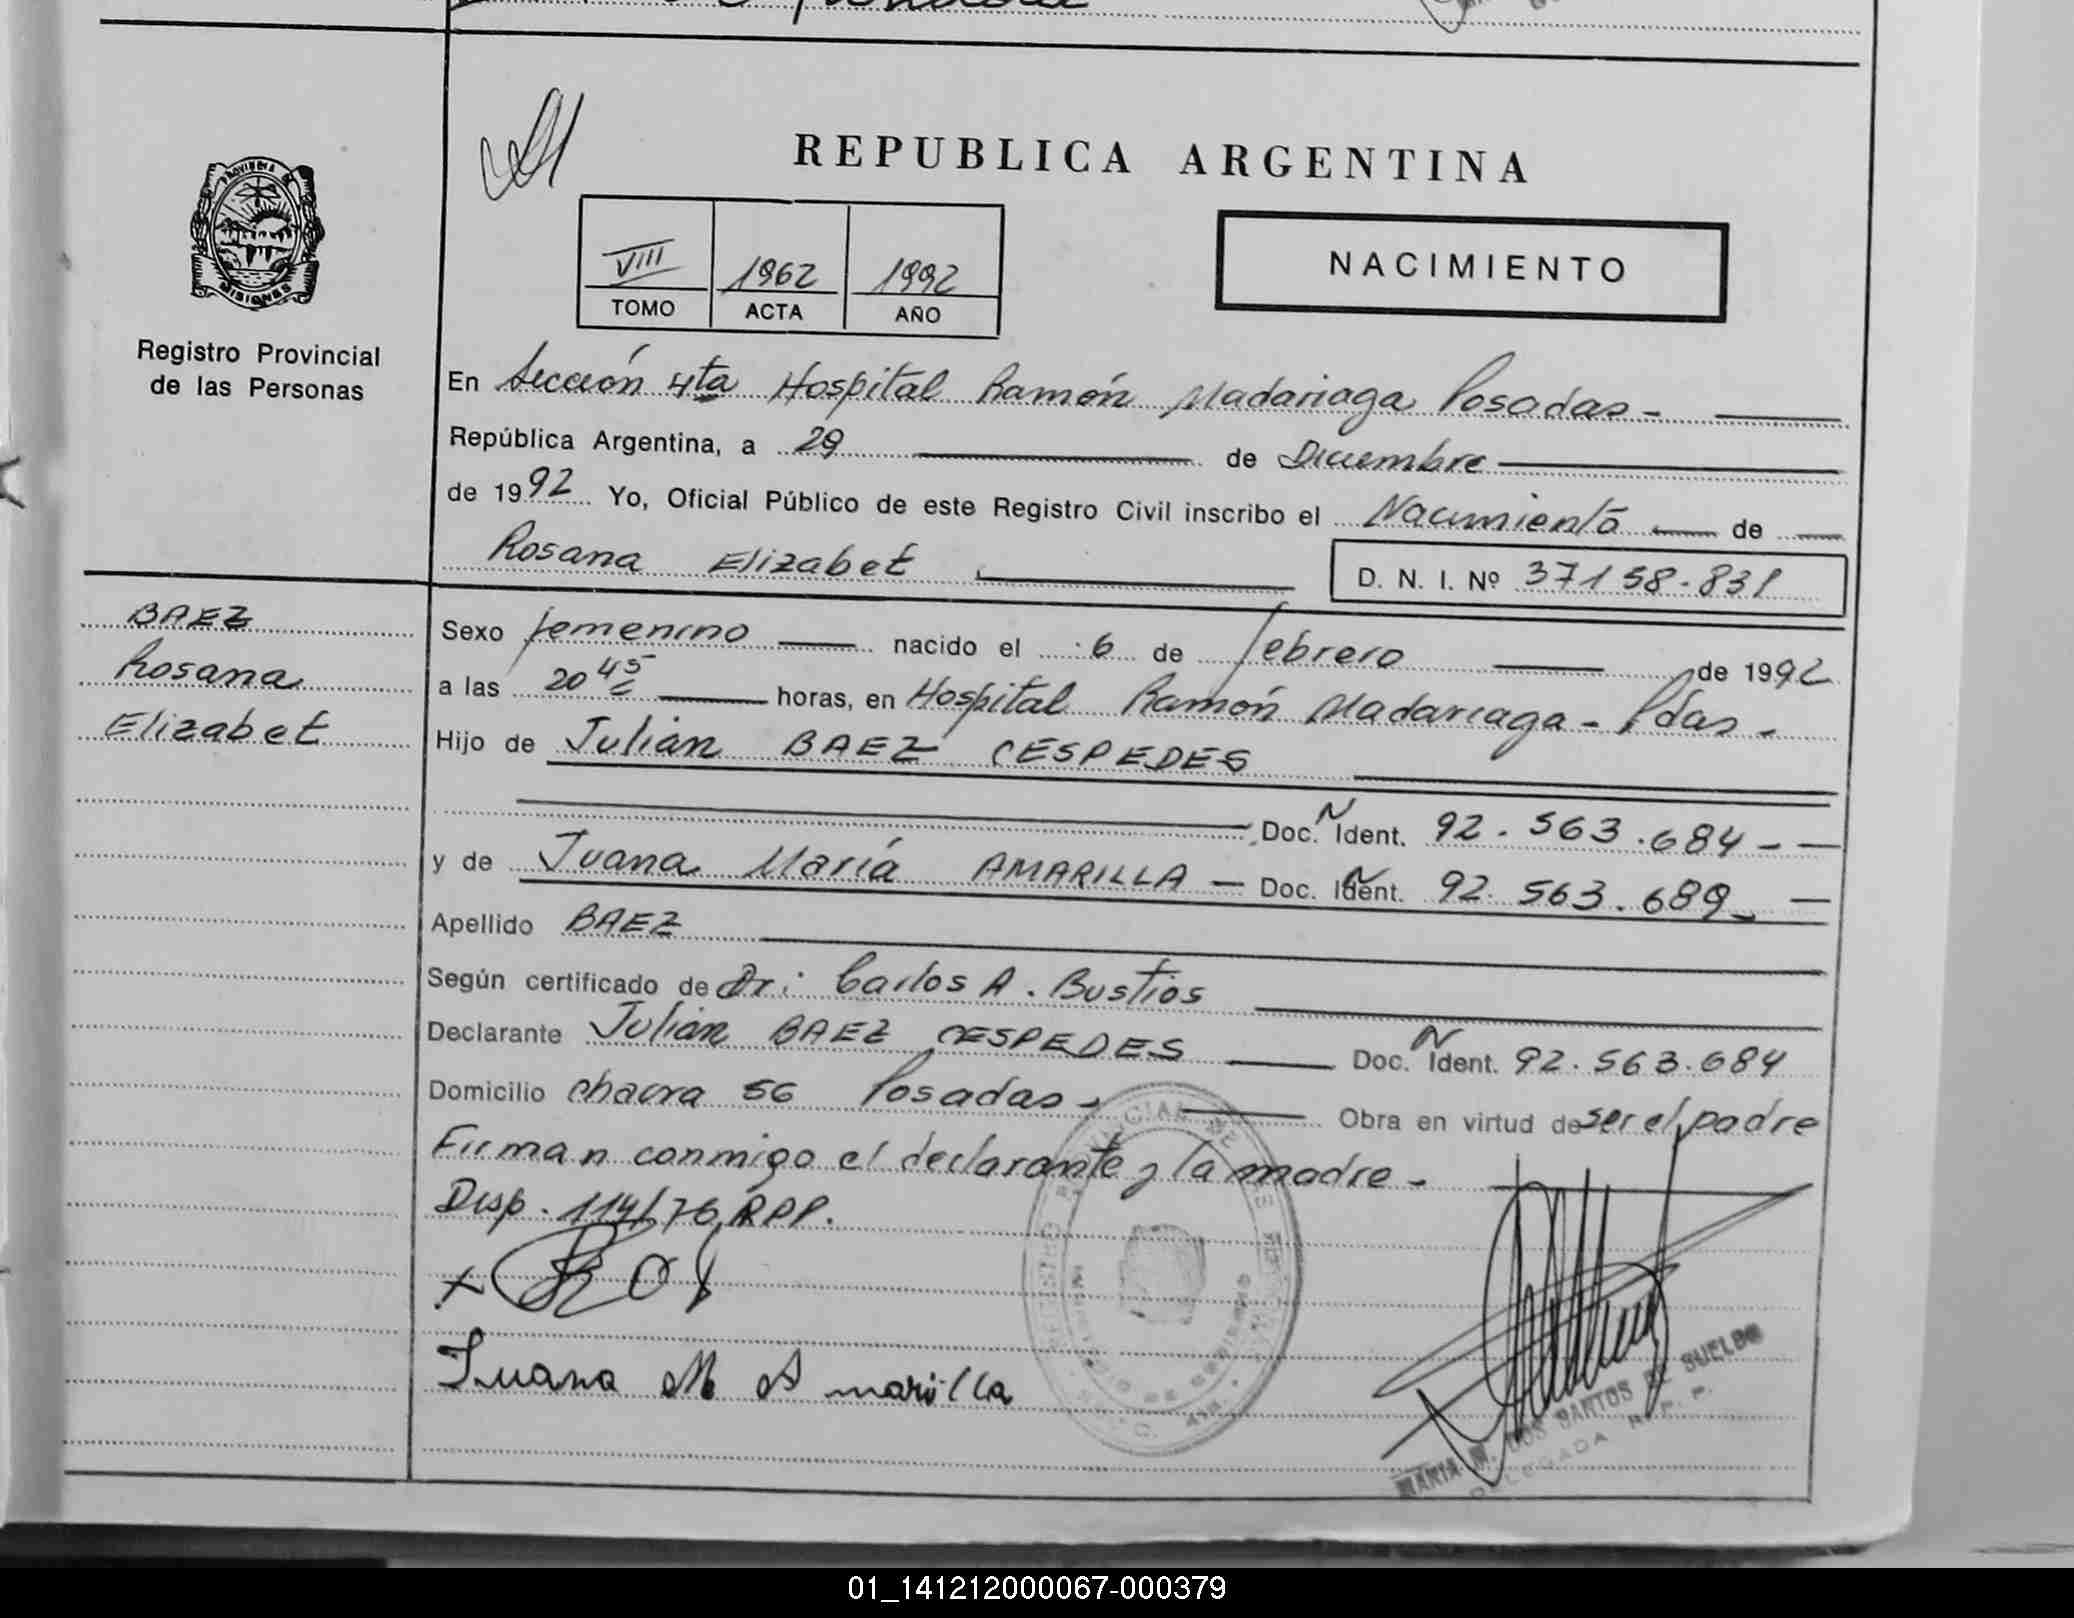 REPUBLICA ARGENTINA
PROVINCIA DE
MISIONES
Registro Provincial
de las Personas
VIII 1962 1992
TOMO ACTA AÑO
NACIMIENTO
En Sección 4ta Hospital Ramón Madariaga Posadas -
República Argentina, a 29 de Diciembre
de 1992 Yo, Oficial Público de este Registro Civil inscribo el Nacimiento de
Rosana Elizabet D. N. I. Nº 37158-831
BAEZ
Rosana
Elizabet
Sexo femenino nacido el 6 de febrero de 1992
a las 20 45 horas, en Hospital Ramón Madariaga - Pdas -
Hijo de Julián BAEZ CESPEDES
Doc. N Ident. 92.563.684 -
y de Juana María AMARILLA - Doc. N Ident. 92.563.689 -
Apellido BAEZ
Según certificado de Dr: Carlos A. Bustios
Declarante Julián BAEZ CESPEDES Doc. N Ident. 92.563.684
Domicilio chacra 56 Posadas - Obra en virtud de ser el padre
Firman conmigo el declarante y la madre -
Disp. 114/76 RPP.
Juana M Amarilla
MARIA M. DOS SANTOS DE SUELDO
DELEGADA R. P. P.
01_141212000067-000379